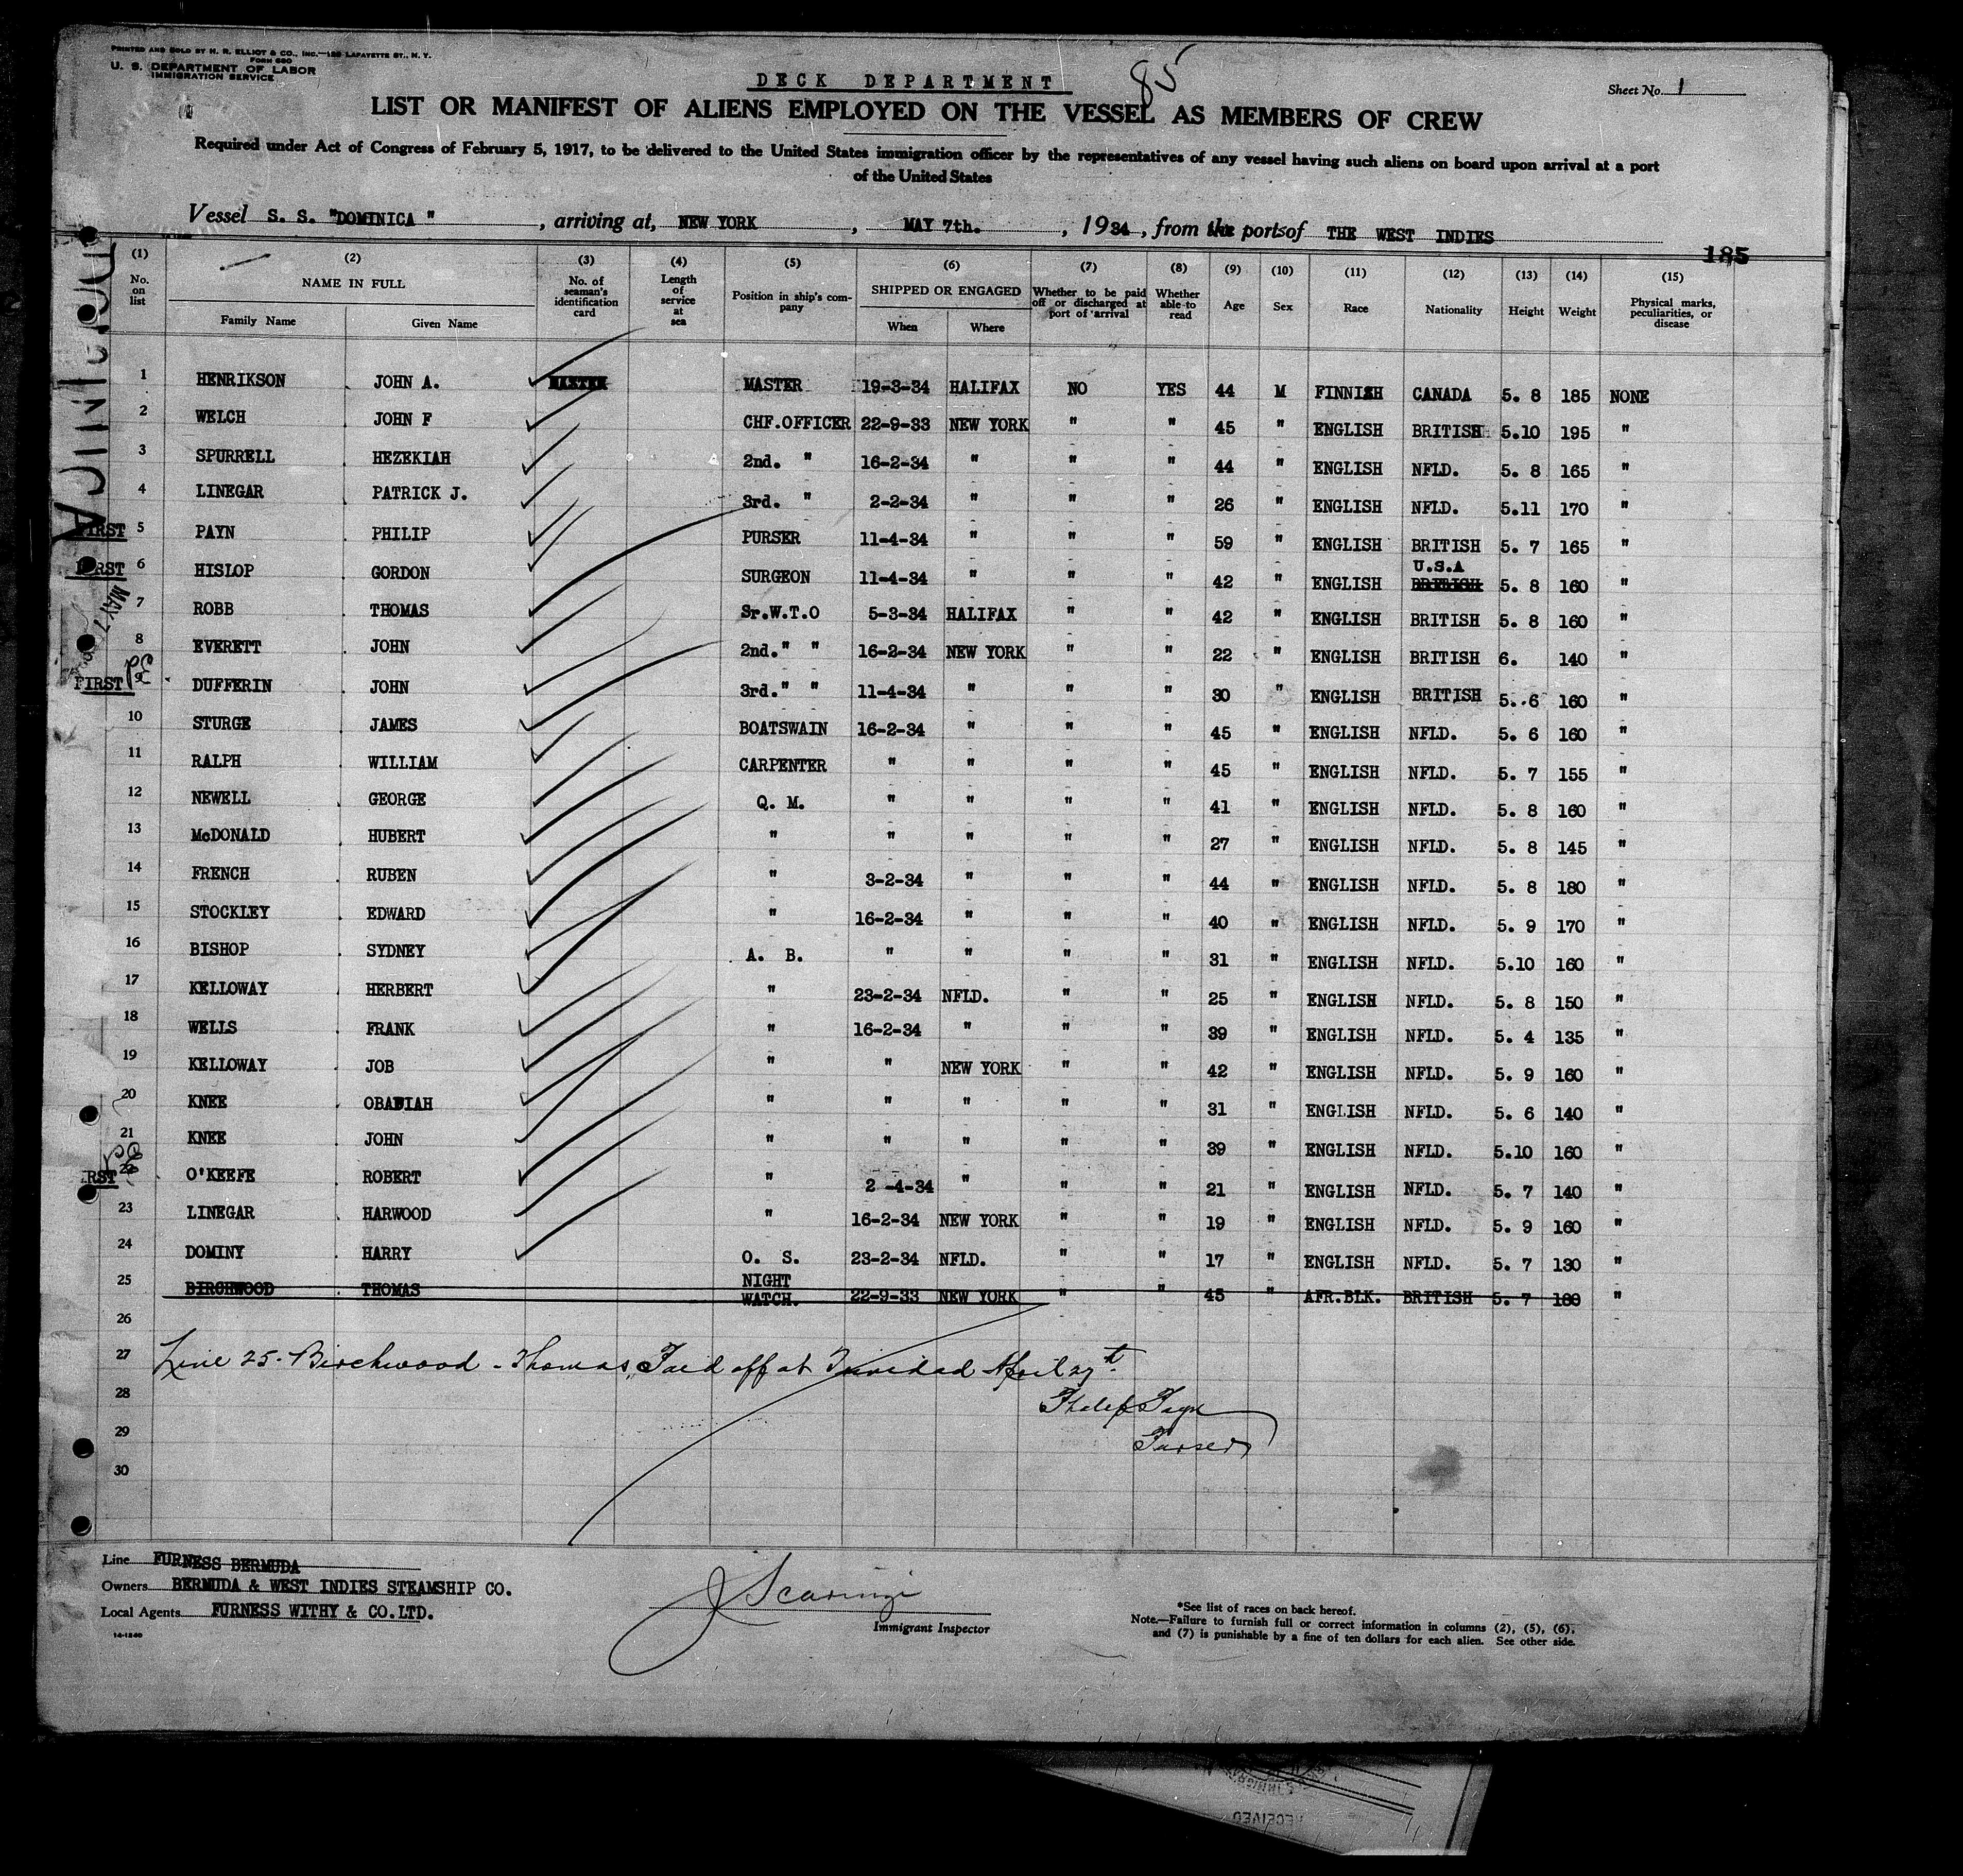 PRINTED AND SOLD BY H. R. ELLIOT & CO., INC.—120 LAFAYETTE ST., N. Y.
FORM 680
U. S. DEPARTMENT OF LABOR
IMMIGRATION SERVICE
DECK DEPARTMENT
85
Sheet No. 1
LIST OR MANIFEST OF ALIENS EMPLOYED ON THE VESSEL AS MEMBERS OF CREW
Required under Act of Congress of February 5, 1917, to be delivered to the United States immigration officer by the representatives of any vessel having such aliens on board upon arrival at a port
of the United States
Vessel S. S. "DOMINICA", arriving at, NEW YORK, MAY 7th., 1934, from the ports of THE WEST INDIES
185
(1) No. on list (2) NAME IN FULL Family Name Given Name (3) No. of seaman's identification card (4) Length of service at sea (5) Position in ship's company (6) SHIPPED OR ENGAGED When Where (7) Whether to be paid off or discharged at port of arrival (8) Whether able to read (9) Age (10) Sex (11) Race (12) Nationality (13) Height (14) Weight (15) Physical marks, peculiarities, or disease
1 HENRIKSON JOHN A. MASTER MASTER 19-3-34 HALIFAX NO YES 44 M FINNISH CANADA 5. 8 185 NONE
2 WELCH JOHN F CHF.OFFICER 22-9-33 NEW YORK " " 45 " ENGLISH BRITISH 5.10 195 "
3 SPURRELL HEZEKIAH 2nd. " 16-2-34 " " " 44 " ENGLISH NFLD. 5. 8 165 "
4 LINEGAR PATRICK J. 3rd. " 2-2-34 " " " 26 " ENGLISH NFLD. 5.11 170 "
FIRST 5 PAYN PHILIP PURSER 11-4-34 " " " 59 " ENGLISH BRITISH 5. 7 165 "
FIRST 6 HISLOP GORDON SURGEON 11-4-34 " " " 42 " ENGLISH U.S.A BRITISH 5. 8 160 "
7 ROBB THOMAS Sr.W.T.O 5-3-34 HALIFAX " " 42 " ENGLISH BRITISH 5. 8 160 "
8 EVERETT JOHN 2nd." " 16-2-34 NEW YORK " " 22 " ENGLISH BRITISH 6. 140 "
FIRST DUFFERIN JOHN 3rd." " 11-4-34 " " " 30 " ENGLISH BRITISH 5. 6 160 "
10 STURGE JAMES BOATSWAIN 16-2-34 " " " 45 " ENGLISH NFLD. 5. 6 160 "
11 RALPH WILLIAM CARPENTER " " " " 45 " ENGLISH NFLD. 5. 7 155 "
12 NEWELL GEORGE Q. M. " " " " 41 " ENGLISH NFLD. 5. 8 160 "
13 McDONALD HUBERT " " " " " 27 " ENGLISH NFLD. 5. 8 145 "
14 FRENCH RUBEN " 3-2-34 " " " 44 " ENGLISH NFLD. 5. 8 180 "
15 STOCKLEY EDWARD " 16-2-34 " " " 40 " ENGLISH NFLD. 5. 9 170 "
16 BISHOP SYDNEY A. B. " " " " 31 " ENGLISH NFLD. 5.10 160 "
17 KELLOWAY HERBERT " 23-2-34 NFLD. " " 25 " ENGLISH NFLD. 5. 8 150 "
18 WELLS FRANK " 16-2-34 " " " 39 " ENGLISH NFLD. 5. 4 135 "
19 KELLOWAY JOB " " NEW YORK " " 42 " ENGLISH NFLD. 5. 9 160 "
20 KNEE OBADIAH " " " " " 31 " ENGLISH NFLD. 5. 6 140 "
21 KNEE JOHN " " " " " 39 " ENGLISH NFLD. 5.10 160 "
22 O'KEEFE ROBERT " 2 -4-34 " " " 21 " ENGLISH NFLD. 5. 7 140 "
23 LINEGAR HARWOOD " 16-2-34 NEW YORK " " 19 " ENGLISH NFLD. 5. 9 160 "
24 DOMINY HARRY O. S. 23-2-34 NFLD. " " 17 " ENGLISH NFLD. 5. 7 130 "
25 BIRCHWOOD THOMAS NIGHT WATCH. 22-9-33 NEW YORK " " 45 " AFR.BLK. BRITISH 5. 7 160 "
26
27 Line 25. Birchwood - Thomas, Paid off at Trinidad April 27th
28 Philip Payn
29 Purser
30
Line FURNESS BERMUDA
Owners BERMUDA & WEST INDIES STEAMSHIP CO.
Local Agents FURNESS WITHY & CO.LTD.
14-1240
J Scaringi
Immigrant Inspector
*See list of races on back hereof.
Note.—Failure to furnish full or correct information in columns (2), (5), (6),
and (7) is punishable by a fine of ten dollars for each alien. See other side.
DOMINICA
MAY 7
RECEIVED